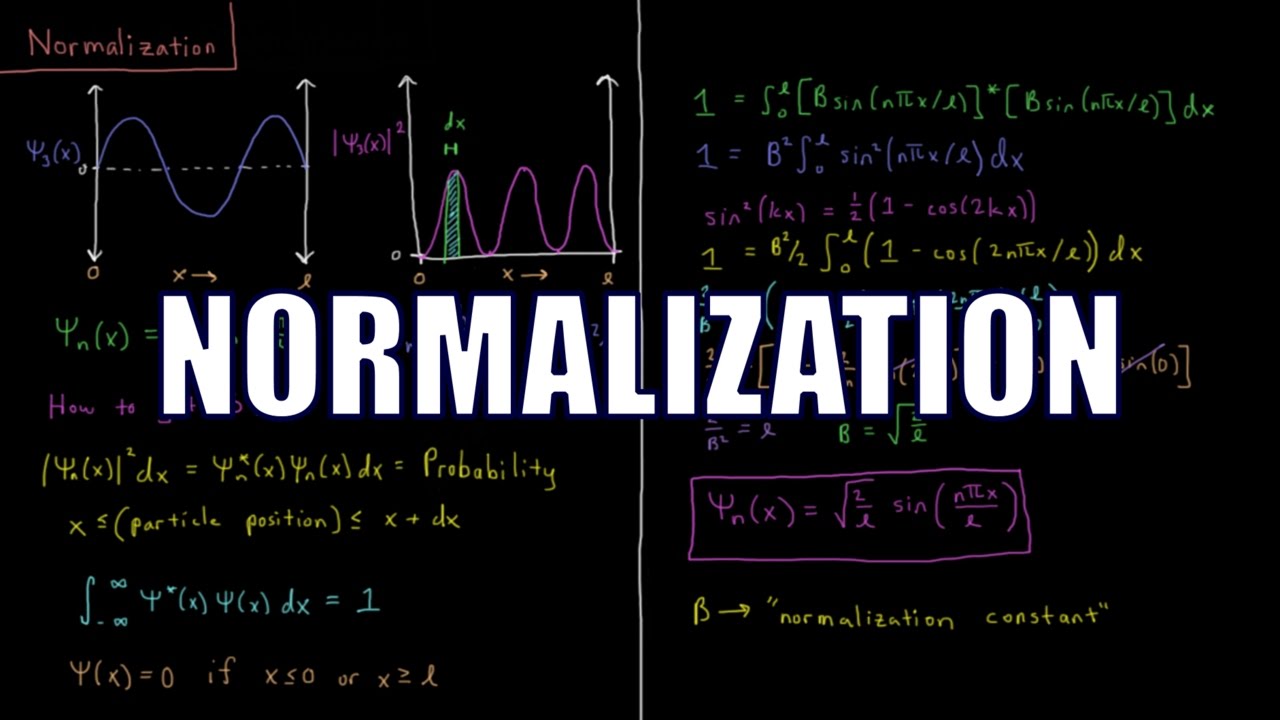 Normalization
Ψ₃(x)
0
0 x→ l
|Ψ₃(x)|²
dx
0
0 x→ l
Ψₙ(x) =
NORMALIZATION
How to
|Ψₙ(x)|² dx = Ψₙ*(x) Ψₙ(x) dx = Probability
x ≤ (particle position) ≤ x + dx
∫₋∞^∞ Ψ*(x) Ψ(x) dx = 1
Ψ(x) = 0 if x ≤ 0 or x ≥ l
1 = ∫₀ˡ [B sin(nπx/l)]* [B sin(nπx/l)] dx
1 = B² ∫₀ˡ sin²(nπx/l) dx
sin²(kx) = ½(1 - cos(2kx))
1 = B²/2 ∫₀ˡ (1 - cos(2nπx/l)) dx
sin(0)]
2/B² = l B = √(2/l)
Ψₙ(x) = √(2/l) sin(nπx/l)
B → "normalization constant"